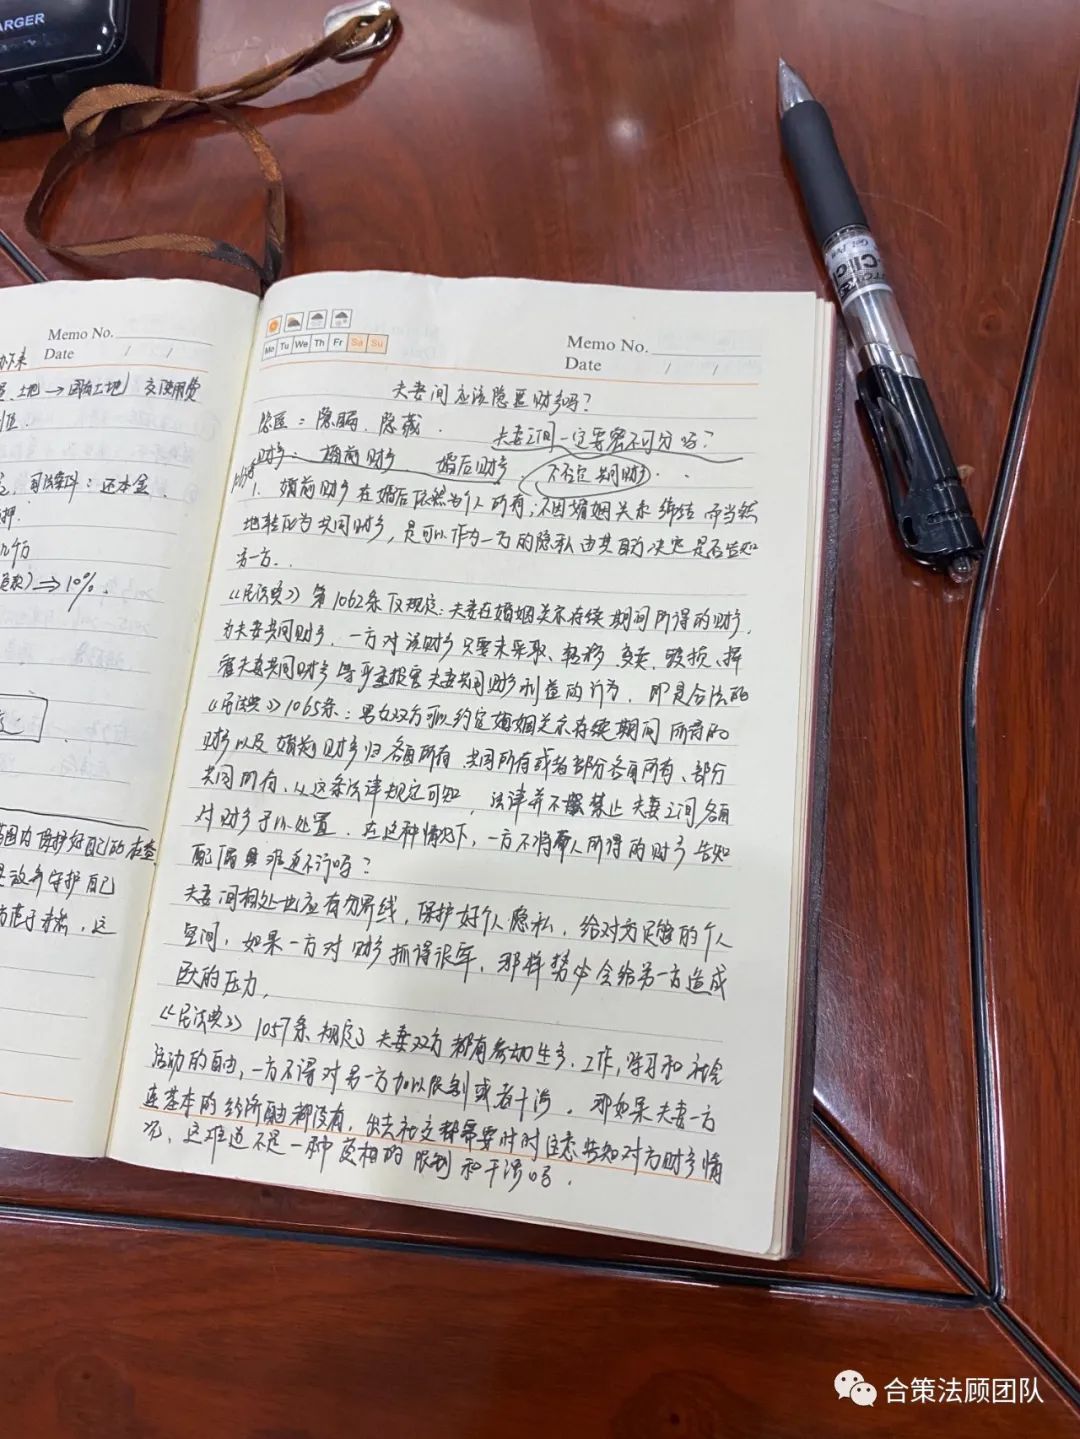 ARGER
Click
Memo No.
Date / /
土地→国有土地 交使用费
司法案件：还本金
押.
⇒10%.
范围内保护好自己的
守护自己
Memo No.
Date / /
Mo Tu We Th Fr Sa Su
夫妻间应该隐匿财产吗？
隐匿：隐瞒、隐藏.
夫妻之间一定要密不可分吗？
财产：婚前财产、婚后财产. 不否定共同财产.
1. 婚前财产在婚后依然为个人所有，不因婚姻关系缔结而当然
地转化为共同财产，是可以作为一方的隐私由其自为决定是否告知
另一方.
《民法典》第1062条仅规定：夫妻在婚姻关系存续期间所得的财产，
为夫妻共同财产，一方对该财产只要未采取、转移、变卖、毁损、挥
霍夫妻共同财产等严重损害夫妻共同财产利益的行为，即是合法的
《民法典》1065条：男女双方可以约定婚姻关系存续期间所得的
财产以及婚前财产归各自所有、共同所有或者部分各自所有、部分
共同所有，从这条法律规定可知，法律并不禁止夫妻之间各自
对财产予以处置，在这种情况下，一方不将个人所得的财产告知
配偶难道不行吗？
夫妻间相处也应有分界线，保护好个人隐私，给对方足够的个人
空间，如果一方对财产抓得很牢，那样势必会给另一方造成
巨大的压力，
《民法典》1057条规定了夫妻双方都有参加生产、工作、学习和社会
活动的自由，一方不得对另一方加以限制或者干涉，那如果夫妻一方
连基本的经济自由都没有，出去社交都需要时时注意告知对方财产情
况，这难道不是一种变相的限制和干涉吗.
合策法顾团队